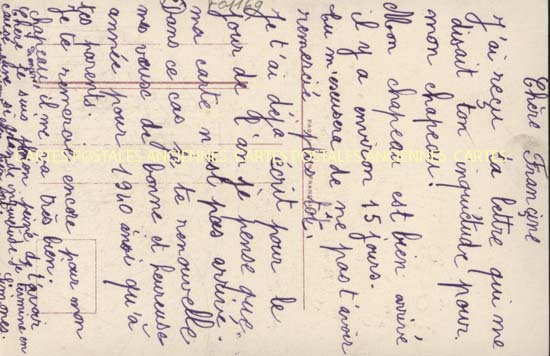 Chère Françine
J'ai reçu ta lettre qui me
disait ton inquiétude pour
mon chapeau!
Mon chapeau est bien arrivé
il y a environ 15 jours.
tu m'excusera de ne pas t'avoir
remercié plus tôt.
Je t'ai déja écrit pour le
jour de l'an je pense que
ma carte n'est pas arrivé.
Dans ce cas je te renouvelle
mes vœux de bonne et heureuse
année pour 1940 ainsi qu'à
tes parents.
Je te remercie encore pour mon
chapeau il me va très bien.
Chère je suis bien peiné de t'avoir
si inquiété je termine en
Simone.
CARTES POSTALES ANCIENNES CARTES POSTALES ANCIENNES